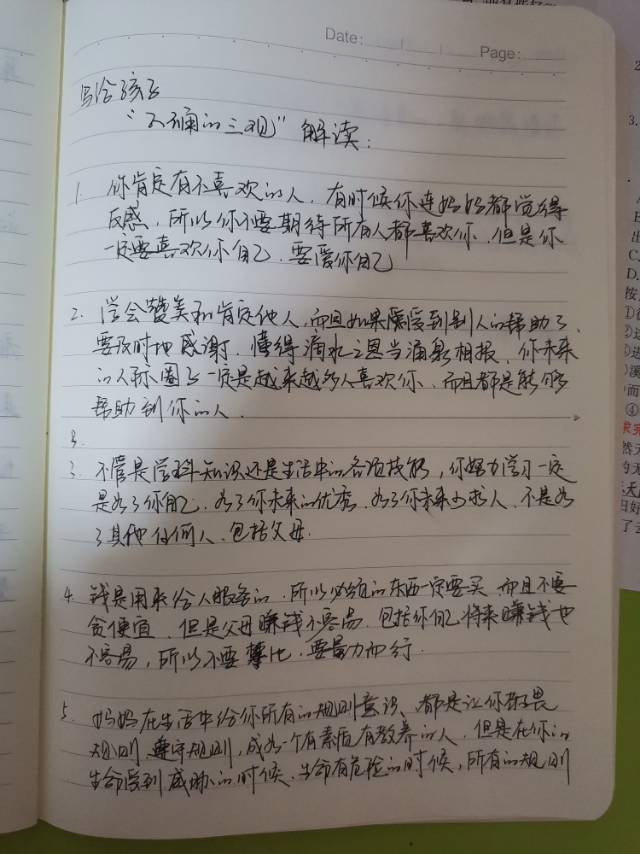 Date:
Page:
写给孩子
“正确的三观”解读：
1. 你肯定有不喜欢的人，有时候你连妈妈都觉得
反感，所以你不要期待所有人都喜欢你，但是你
一定要喜欢你自己，要爱你自己
2. 学会赞美和肯定他人，而且如果感受到别人的帮助了，
要及时地感谢，懂得滴水之恩当涌泉相报，你未来
的人际圈子一定是越来越多人喜欢你，而且都是能够
帮助到你的人.
3.
3. 不管是学科知识还是生活中的各项技能，你努力学习一定
是为了你自己，为了你未来的优秀，为了你未来少求人，不是为
了其他任何人，包括父母.
4. 钱是用来给人服务的，所以必须的东西一定要买，而且不要
贪便宜，但是父母赚钱不容易，包括你自己将来赚钱也
不容易，所以不要攀比，要量力而行.
5. 妈妈在生活中给你所有的规则意识、都是让你敬畏
规则，遵守规则，成为一个有素质有教养的人，但是在你的
生命受到威胁的时候，生命有危险的时候，所有的规则
2
3.
C.
D.
按
④